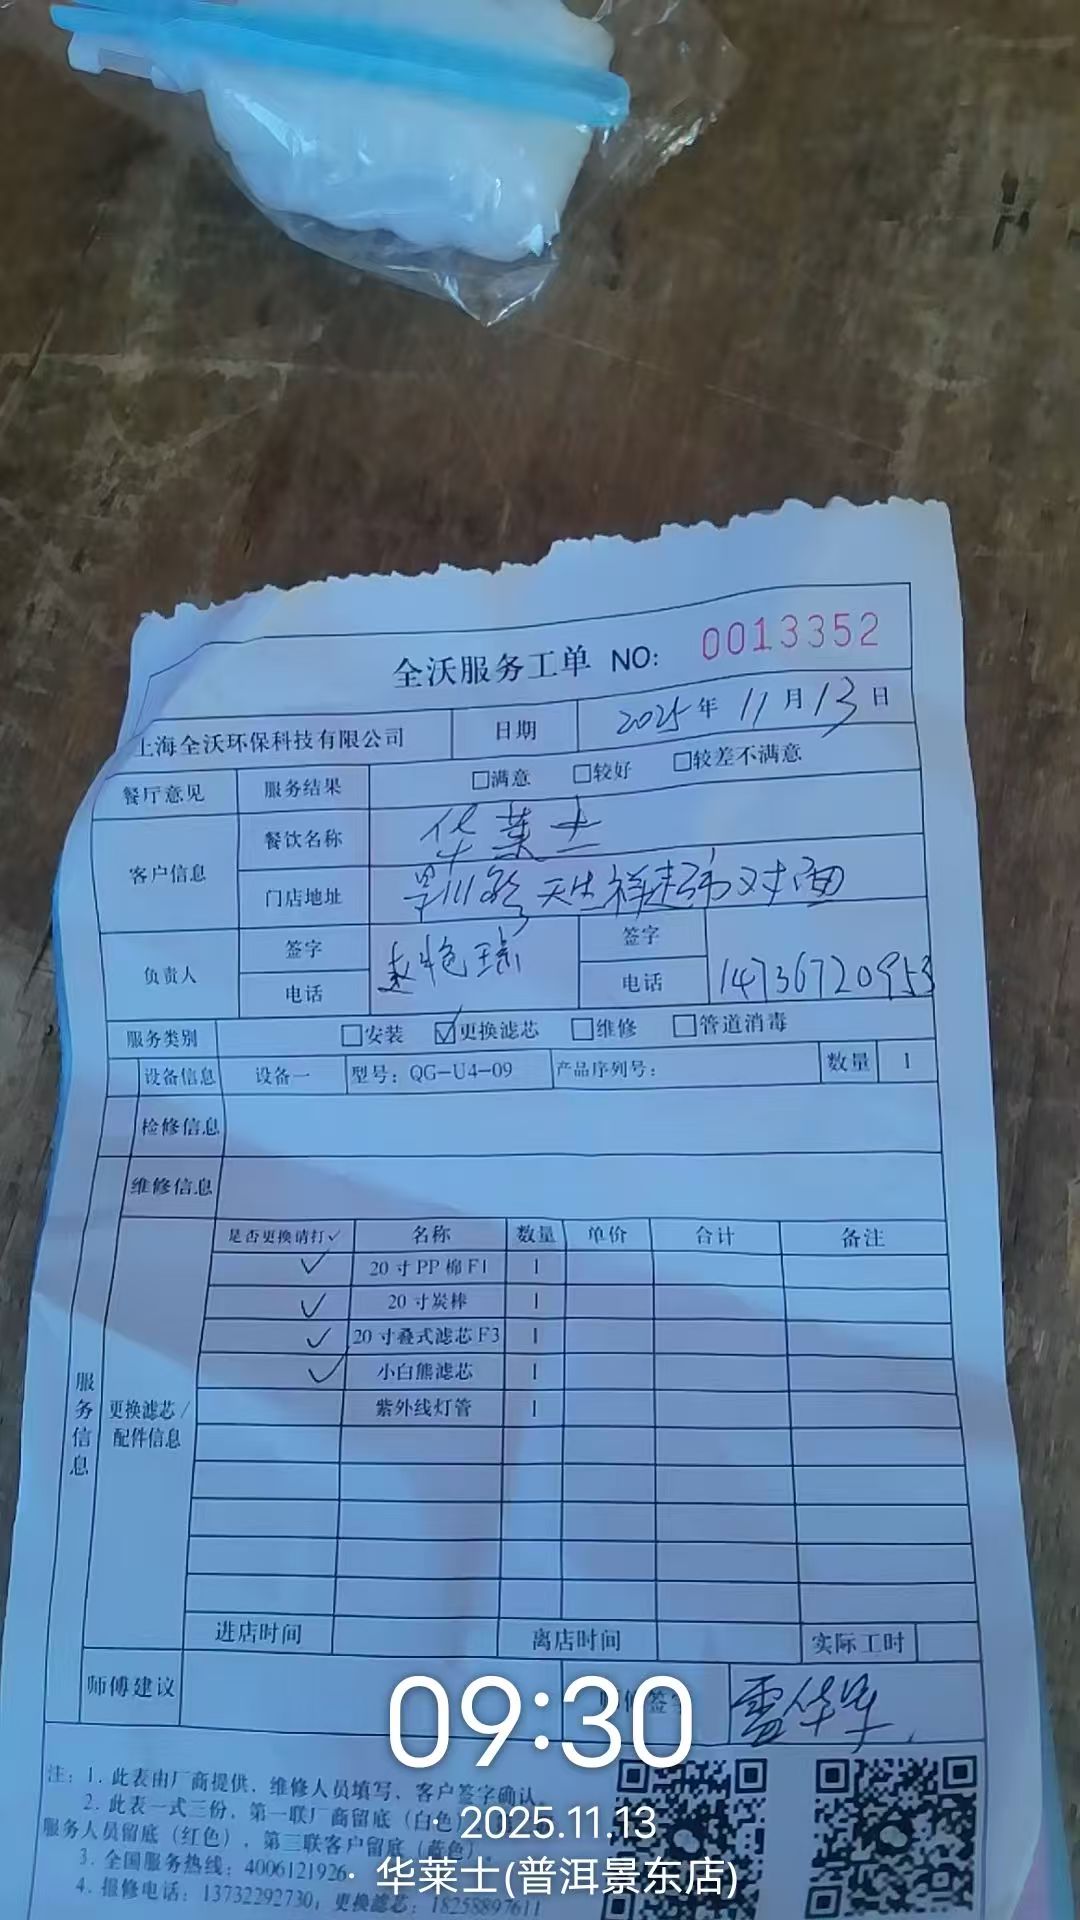 全沃服务工单 NO: 0013352
上海全沃环保科技有限公司 日期 2025年 11月 13日
餐厅意见 服务结果 □满意 □较好 □较差不满意
客户信息 餐饮名称 华莱士
门店地址 川路天生祥超市对面
负责人 签字 签字
电话 电话 14736720953
服务类别 □安装 ☑更换滤芯 □维修 □管道消毒
设备信息 设备一 型号：QG-U4-09 产品序列号： 数量 1
检修信息
维修信息
服务信息
更换滤芯/
配件信息
是否更换请打✓ 名称 数量 单价 合计 备注
✓ 20寸PP棉F1 1
✓ 20寸炭棒 1
✓ 20寸叠式滤芯F3 1
✓ 小白熊滤芯 1
紫外线灯管 1
进店时间 离店时间 实际工时
师傅建议 签字
09:30
注：1. 此表由厂商提供，维修人员填写，客户签字确认。
2. 此表一式三份，第一联厂商留底（白色）
服务人员留底（红色），第三联客户留底（蓝色）。
3. 全国服务热线：4006121926
4. 报修电话：13732292730，更换滤芯：18258897611
2025.11.13
华莱士(普洱景东店)